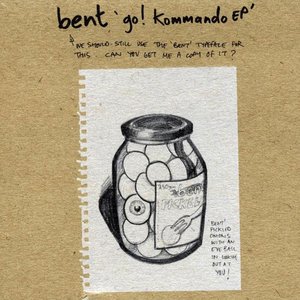 bent 'go! Kommando EP'
WE SHOULD STILL USE THE 'BENT' TYPEFACE FOR
THIS. CAN YOU GET ME A COPY OF IT?
BENT
PICKLED
ONIONS
WITH AN
EYE BALL
LOOKING
OUT AT
YOU!